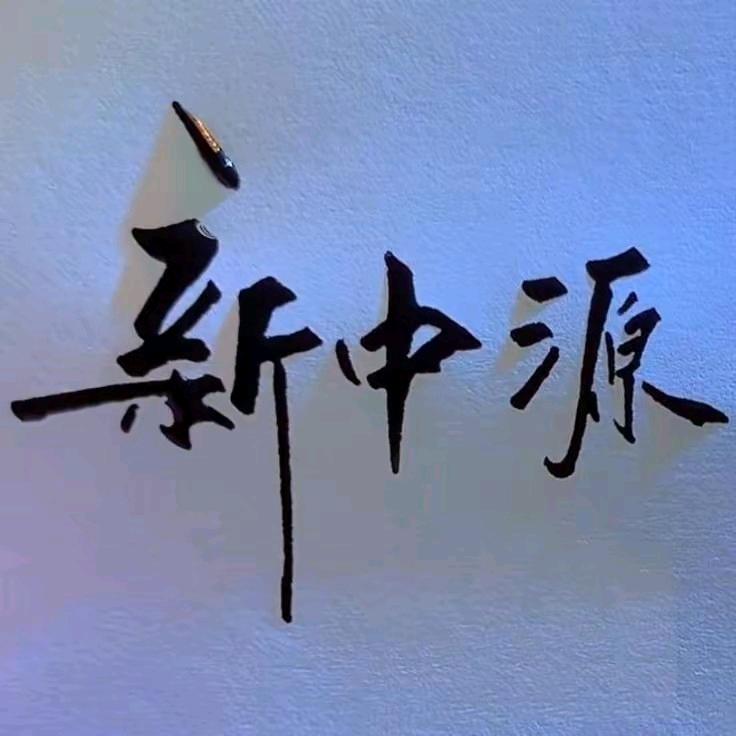 新中源